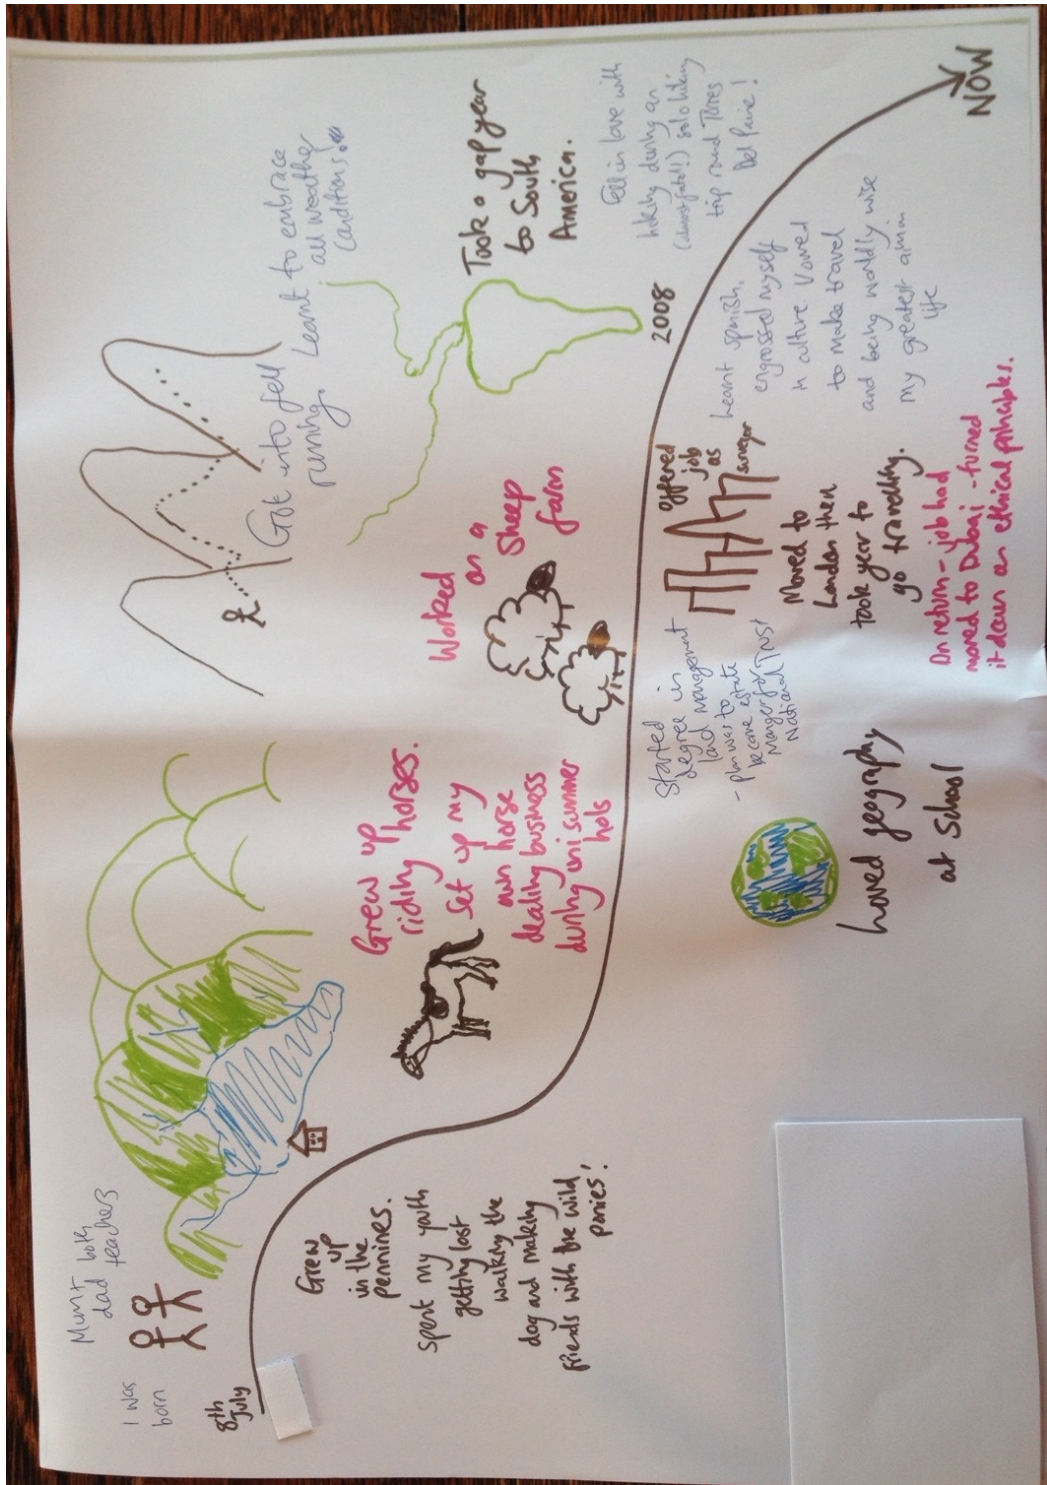 I was
born
8th
July
Mum +
dad both
teachers
Grew
up
in the
pennines.
spent my youth
getting lost
walking the
dog and making
friends with the wild
ponies!
Grew up
riding horses.
Set up my
own horse
dealing business
during uni summer
hols
Loved geography
at School
Worked
on a
Sheep
farm
Started
degree in
land management
- plan was to
become estate
manger for
National Trust
Got into fell
running. Learnt to embrace
all weather
conditions!
offered
job
as
surveyor
Moved to
London then
took year to
go travelling.
On return - job had
moved to Dubai - turned
it down on ethical principles.
Took a gap year
to South
America.
2008
Learnt spanish,
engrossed myself
in culture. Vowed
to make travel
and being worldly wise
my greatest aim in
life
Fell in love with
hiking during an
(almost fatal!!) solo hiking
trip round Torres
Del Paine!
NOW